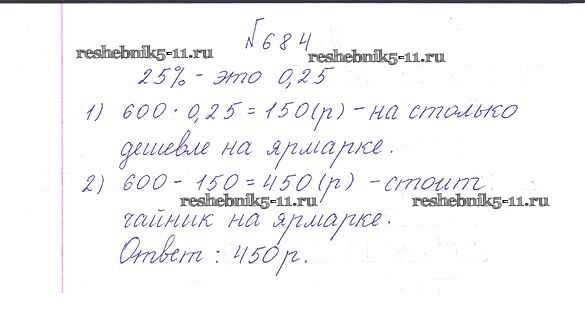 №684
reshebnik5-11.ru reshebnik5-11.ru
25% - это 0,25
1) 600 · 0,25 = 150(р) - на столько
дешевле на ярмарке.
2) 600 - 150 = 450(р) - стоит
reshebnik5-11.ru reshebnik5-11.ru
чайник на ярмарке.
Ответ : 450р.